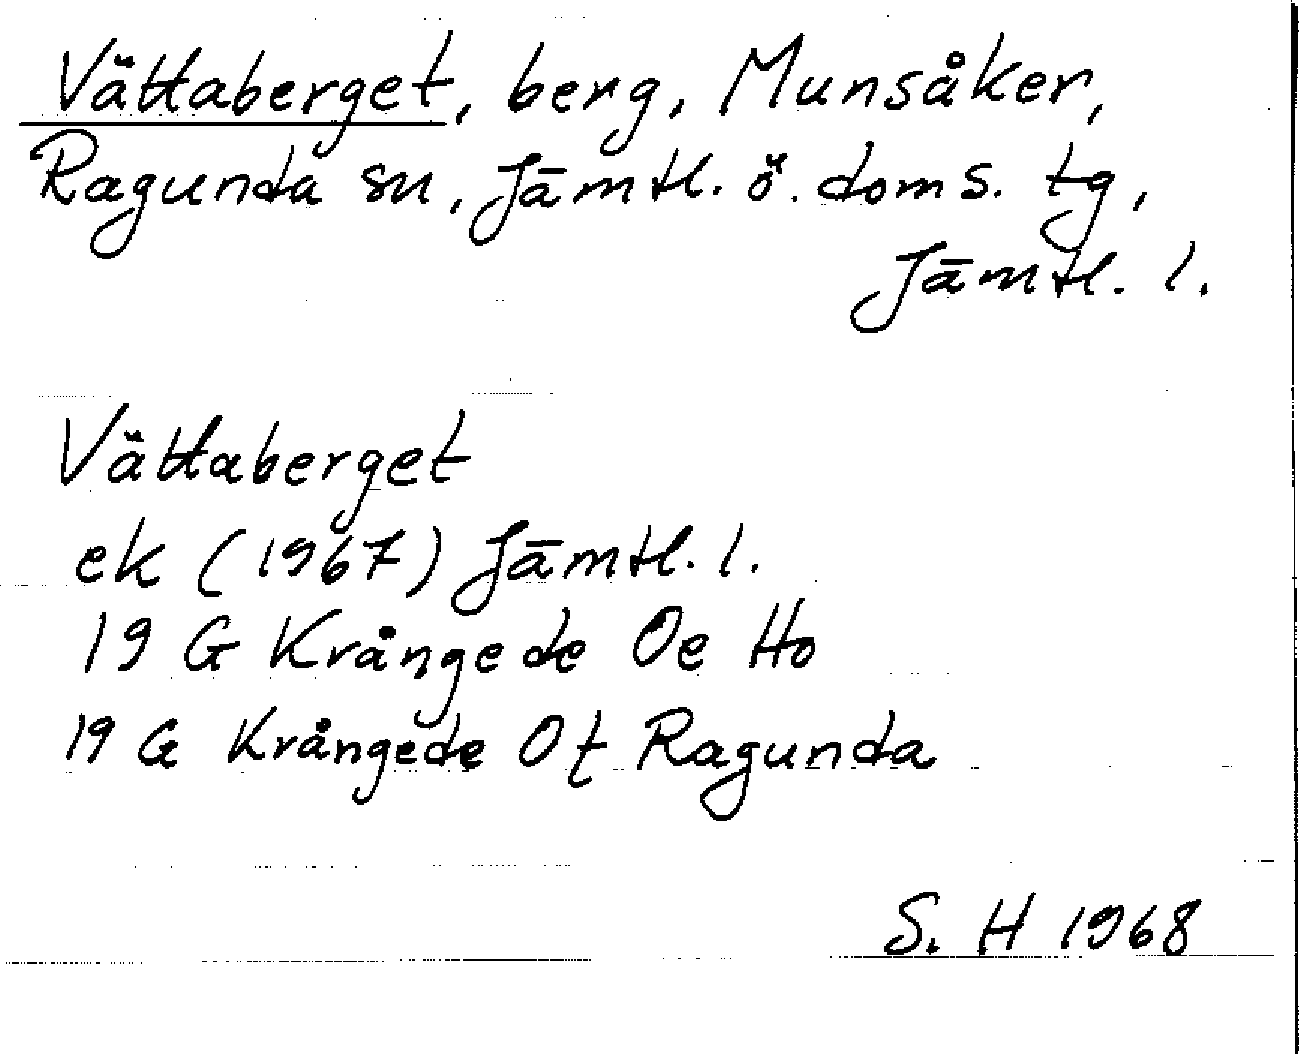 Vättaberget, berg, Munsåker,
Ragunda sn, Jämtl. ö. doms. tg,
Jämtl. l.
Vättaberget
ek (1967) Jämtl. l.
19 G Krångede Oe Ho
19 G Krångede Of Ragunda
S. H 1968